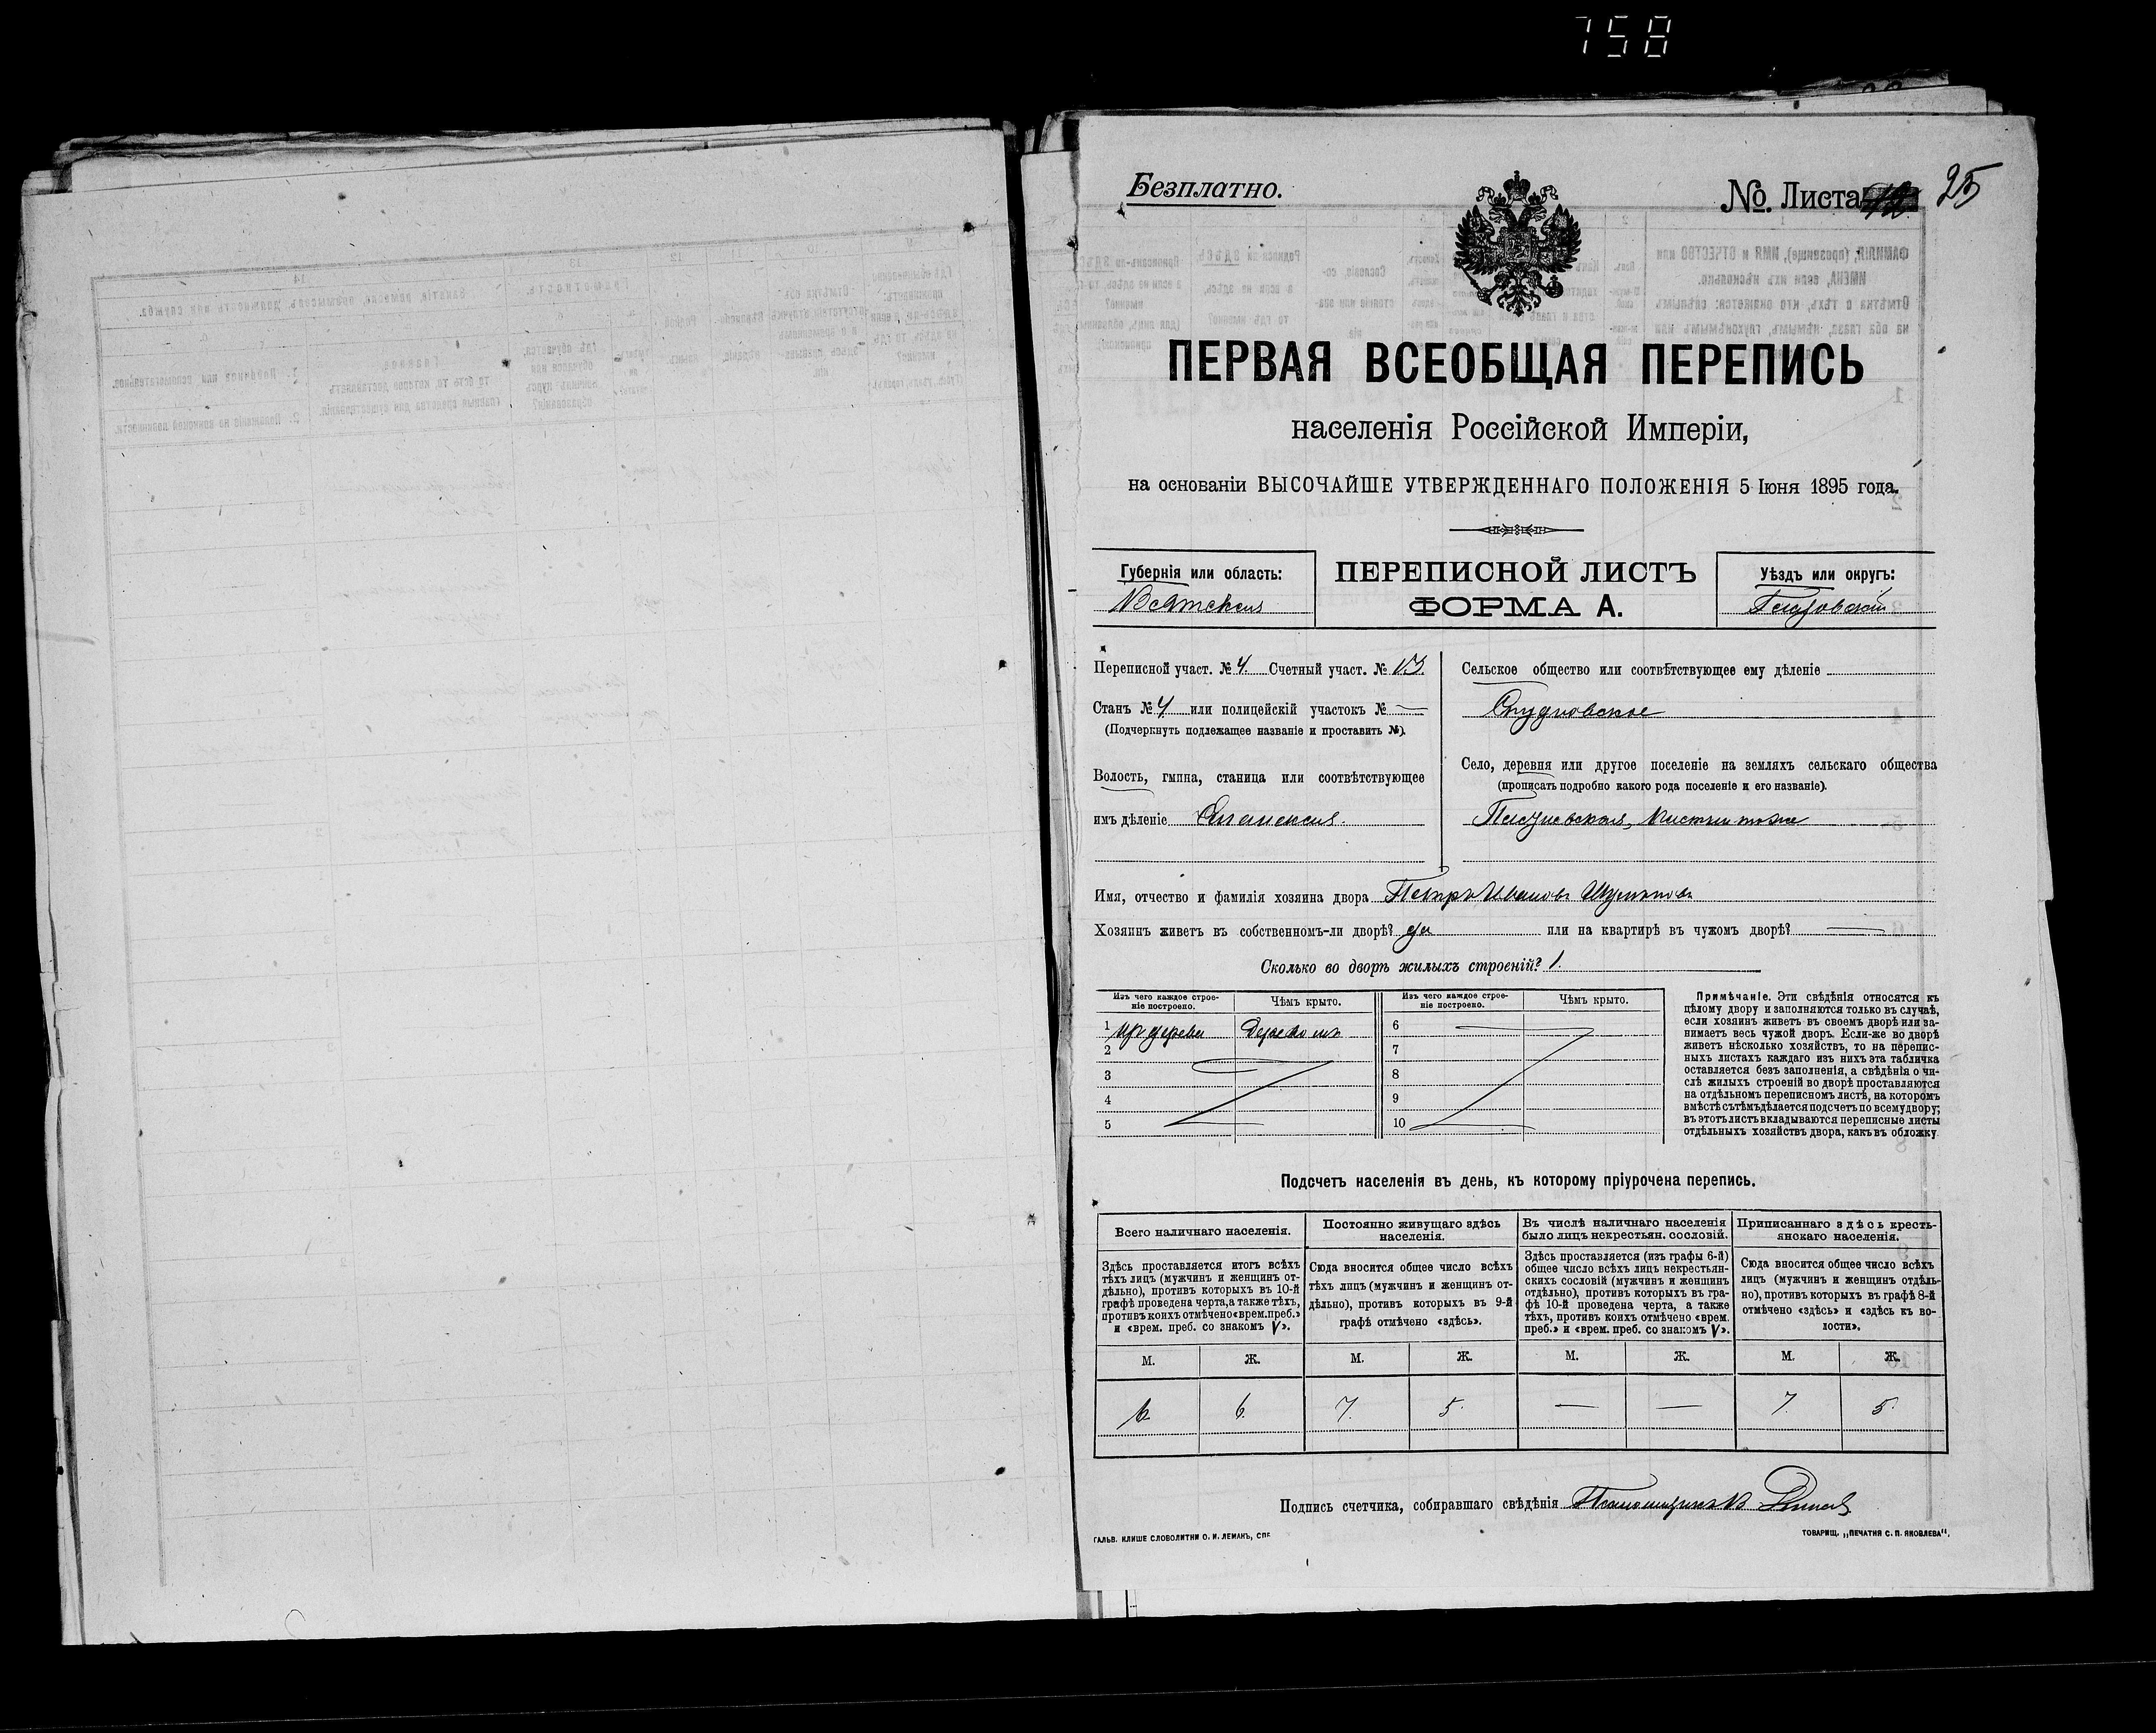 758
Безплатно.
№ Листа 25
ПЕРВАЯ ВСЕОБЩАЯ ПЕРЕПИСЬ
населенія Россійской Имперіи,
на основаніи ВЫСОЧАЙШЕ УТВЕРЖДЕННАГО ПОЛОЖЕНІЯ 5 Іюня 1895 года.
Губернія или область:
Вятская
ПЕРЕПИСНОЙ ЛИСТЪ
ФОРМА А.
Уѣздъ или округъ:
Глазовскій
Переписной участ. № 4. Счетный участ. № 13.
Станъ № 4 или полицейскій участокъ № —
(Подчеркнуть подлежащее названіе и проставить №).
Волость, гмина, станица или соотвѣтствующее
имъ дѣленіе
Сельское общество или соотвѣтствующее ему дѣленіе
Село, деревня или другое поселеніе на земляхъ сельскаго общества
(прописать подробно какого рода поселеніе и его названіе).
Имя, отчество и фамилія хозяина двора Петръ Ивановъ
Хозяинъ живетъ въ собственномъ-ли дворѣ? да или на квартирѣ въ чужомъ дворѣ? —
Сколько во дворѣ жилыхъ строеній? 1.
Изъ чего каждое строе-
ніе построено.
Чѣмъ крыто.
Изъ чего каждое строе-
ніе построено.
Чѣмъ крыто.
1 изъ дерева Деревомъ
2
3
4
5
6
7
8
9
10
Примѣчаніе. Эти свѣдѣнія относятся къ
цѣлому двору и заполняются только въ случаѣ,
если хозяинъ живетъ въ своемъ дворѣ или за-
нимаетъ весь чужой дворъ. Если-же во дворѣ
живетъ нѣсколько хозяйствъ, то на перепис-
ныхъ листахъ каждаго изъ нихъ эта табличка
оставляется безъ заполненія, а свѣдѣнія о чи-
слѣ жилыхъ строеній во дворѣ проставляются
на отдѣльномъ переписномъ листѣ, на которомъ
вмѣстѣ съ тѣмъ дѣлается подсчетъ по всему двору;
въ этотъ листъ вкладываются переписные листы
отдѣльныхъ хозяйствъ двора, какъ въ обложку
Подсчетъ населенія въ день, къ которому пріурочена перепись.
Всего наличнаго населенія.
Постоянно живущаго здѣсь
населенія.
Въ числѣ наличнаго населенія
было лицъ некрестьян. сословій.
Приписаннаго здѣсь кресть-
янскаго населенія.
Здѣсь проставляется итогъ всѣхъ
тѣхъ лицъ (мужчинъ и женщинъ от-
дѣльно), противъ которыхъ въ 10-й
графѣ проведена черта, а также тѣхъ,
противъ коихъ отмѣчено «врем. преб.»
и «врем. преб. со знакомъ V».
Сюда вносится общее число всѣхъ
тѣхъ лицъ (мужчинъ и женщинъ от-
дѣльно), противъ которыхъ въ 9-й
графѣ отмѣчено «здѣсь».
Здѣсь проставляется (изъ графы 6-й)
общее число всѣхъ лицъ некрестьян-
скихъ сословій (мужчинъ и женщинъ
отдѣльно), противъ которыхъ въ гра-
фѣ 10-й проведена черта, а также
тѣхъ, противъ коихъ отмѣчено «врем.
преб.» и «врем. преб. со знакомъ V».
Сюда вносится общее число всѣхъ
лицъ (мужчинъ и женщинъ отдѣль-
но), противъ которыхъ въ графѣ 8-й
отмѣчено «здѣсь» и «здѣсь къ во-
лости».
М. Ж. М. Ж. М. Ж. М. Ж.
6 6. 7. 5. — — 7. 5.
Подпись счетчика, собиравшаго свѣдѣнія
ГАЛЬВ. КЛИШЕ СЛОВОЛИТНИ О. И. ЛЕМАНЪ, СПБ
ТОВАРИЩ. „ПЕЧАТНЯ С. П. ЯКОВЛЕВА".